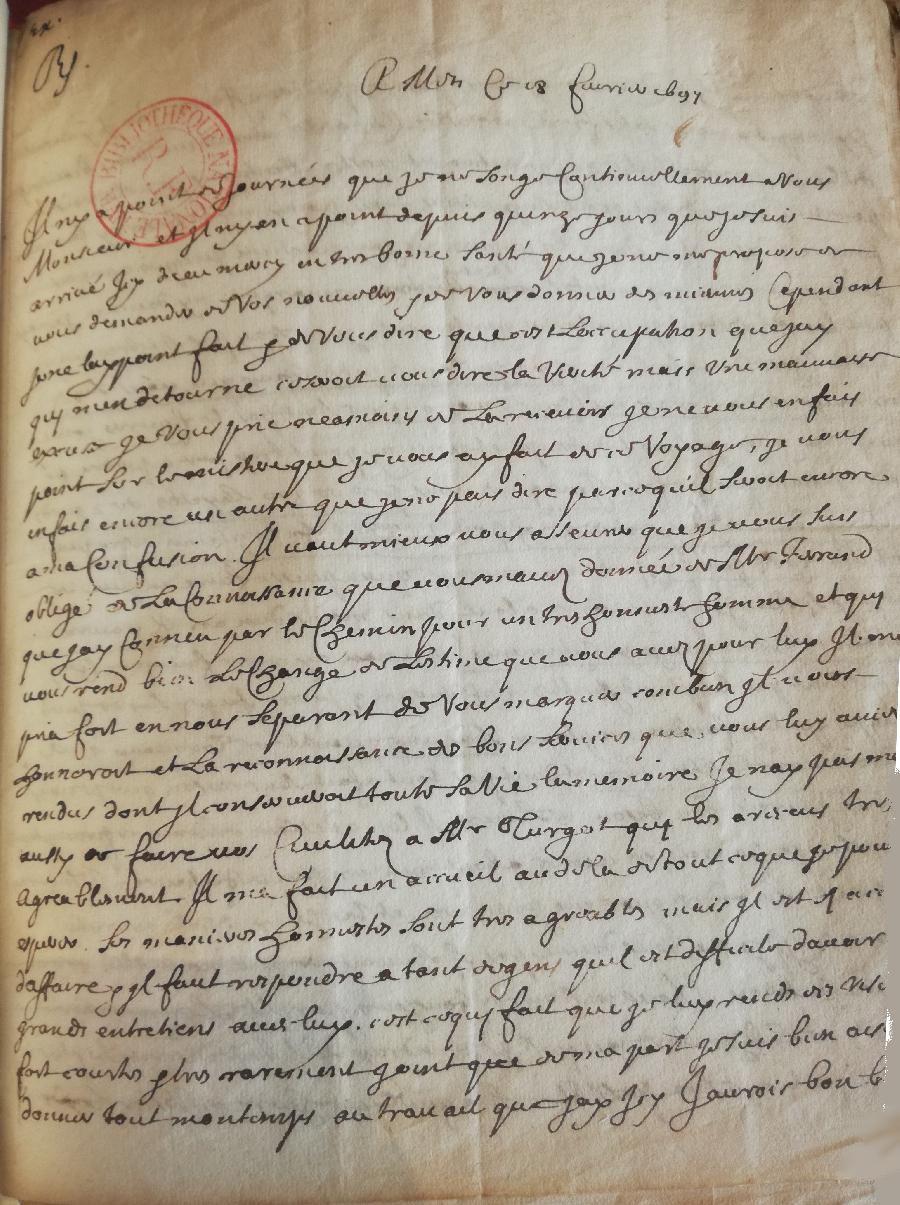 Rx.
A Mets ce 18 feuvrier 1697
BIBLIOTHEQUE NATIONALE
R F
Il ny a point de journées que je ne songe Continuellement a Vous
Monsieur et Il ny en a point depuis quinze jours que je suis
arrivé Icy dieu mercy en tres bonne santé que je ne me propose de
vous demander de Vos nouvelles & de Vous donner des miennes Cependant
je ne lay point fait & de Vous dire que cest Loccupation que jay
qui men detourne ce seroit vous dire la Verité mais Une mauvaise
excuse je Vous prie neamoins de La recevoir je ne vous en fais
point sur le que je vous ay fait de ce Voyage, je vous
en fais encore un autre que je ne puis dire parcequil seroit encore
a ma Confusion. Il vaut mieux vous asseurer que je vous suis
obligé de La Connoissance que vous mavez donnée de Mr Ferrand
que jay Conneu par le Chemin pour un tres honneste homme et qui
vous rend bien Le Change de Lestime que vous avez pour luy Il me
pria fort en nous separant de Vous marquer combien Il vous
honnoroit et La reconnoissance des bons services que vous luy aviez
rendus dont Il conserveroit toute sa Vie la memoire Je nay pas ma
aussy de faire vos Civilitez a Mr Turgot qui les a receus tres
Agreablement Il ma fait un accueil au dela de tout ce que je pou
esperer. Ses manieres honnestes sont tres agreables mais Il est
daffaire & Il faut respondre a tant de gens quil est difficile davoir
grands entretiens avec luy. cest ce qui fait que je luy rends des visi
fort courtes & tres rarement joint que de ma part je suis bien ais
donner tout mon temps au travail que jay Icy Jaurois bon b